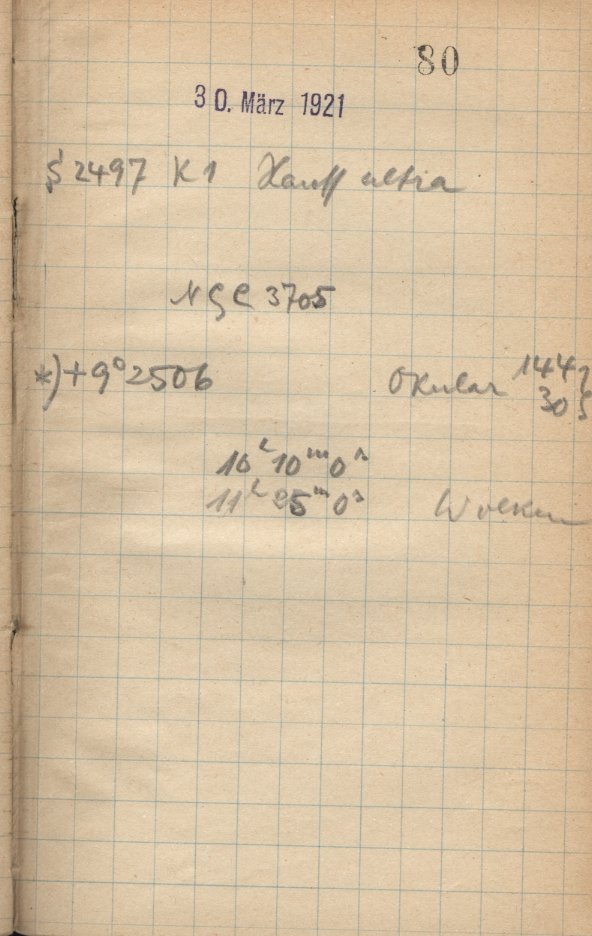 80
30. März 1921
S 2497 K1 Hauff ultra
NGC 3705
*) +9° 2506 Okular 144
30
10h 10m 0s
11h 25m 0s Wolken